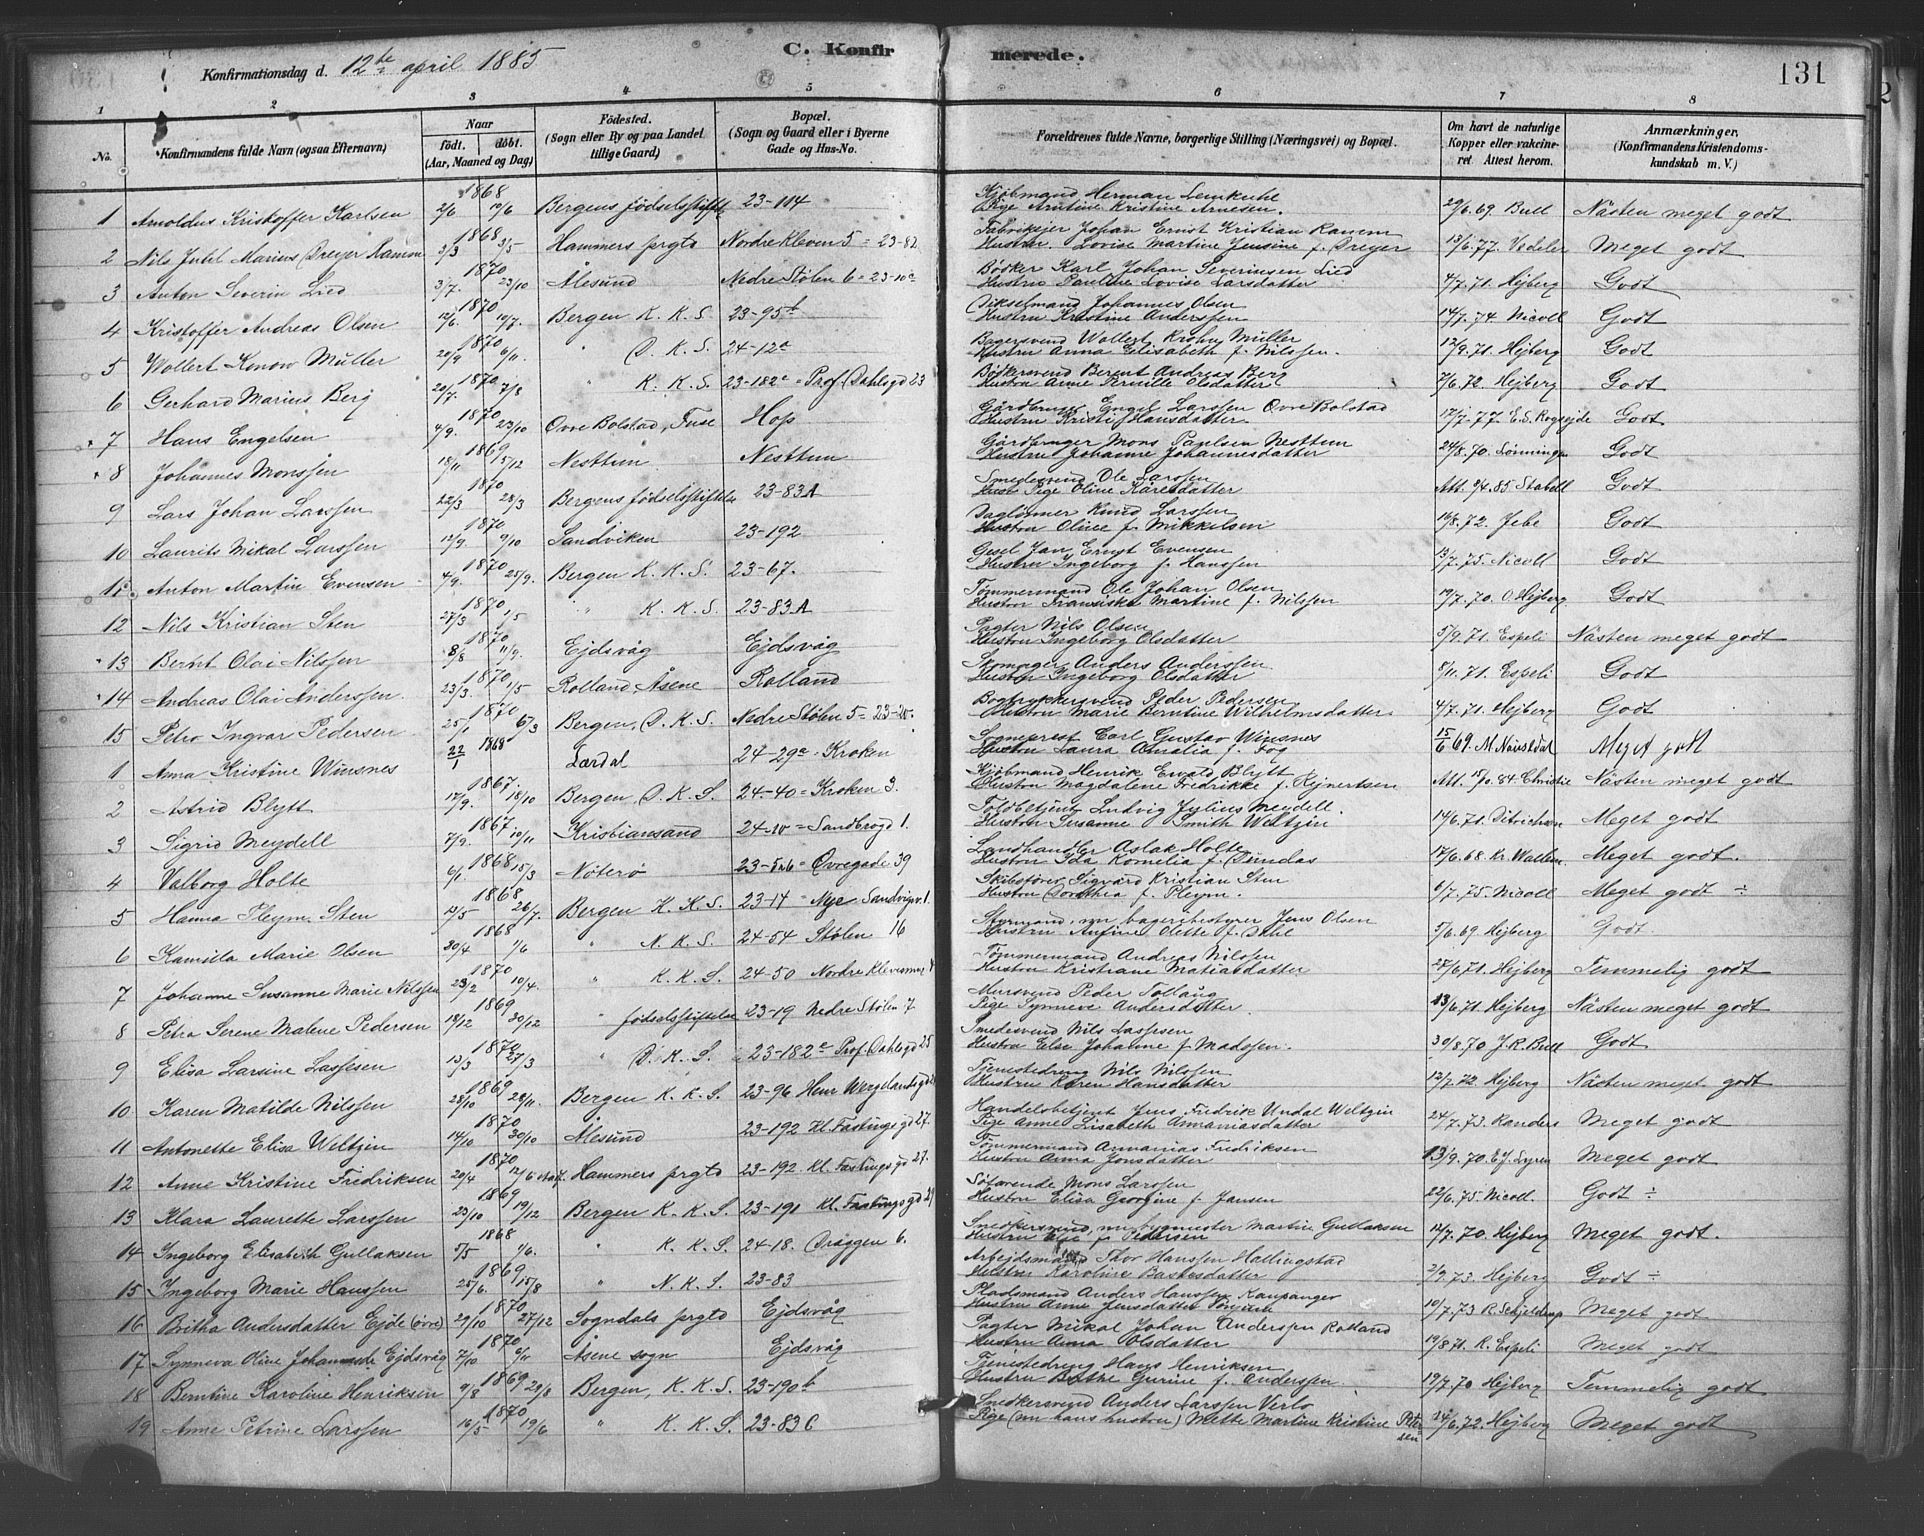 C. Konfirmerede.
131
Konfirmationsdag d. 12te april 1885
1 2 3 4 5 6 7 8
No. Konfirmandens fulde Navn (ogsaa Efternavn) Naar født. døbt. (Aar, Maaned og Dag) Fødested. (Sogn eller By og paa Landet tillige Gaard) Bopæl. (Sogn og Gaard eller i Byerne Gade og Hus-No. Forældrenes fulde Navne, borgerlige Stilling (Næringsvei) og Bopæl. Om havt de naturlige Kopper eller vakcineret. Attest herom. Anmærkninger. (Konfirmandens Kristendomskundskab m. V.)
1 Arnoldus Kristoffer Karlsen 1868 2/6 19/6 Bergens fødselsstiftelse 23-114 Kjøbmand Herman Lemkuhl Pige Kristine Arnesen. 29/6.69 Bull Nästen meget godt
2 Nils Juhl Marius Dreyer 1868 3/3 3/5 Hammers prgtd Nordre Kleven 5 = 23-82 Johan Ernst Kristian Hustru Lovise Martine Jensine f. Dreyer 13/6.77. Vedeler Meget godt
3 Anton Severin Lied 1870 3/7. 23/10 Ålesund Nedre Stølen 6 = 23-10c Bødker Karl Johan Severinsen Lied Hustru Pauline Lovise Larsdatter 4/7.71. Hejberg Godt
4 Kristoffer Andreas Olsen 1870 12/6. 17/7. Bergen K. K. S. 23-95b Johannes Olsen Hustru Kristine Anderssen 14/7.74. Nicoll Godt
5 Wollert Konow Müller 1870 20/9 6/11. " D. K. S. 24-12c Bagersvend Wollert Krohn Müller Hustru Anna Elisabeth f. Nilssen. 12/9.71. Hejberg Godt
6 Gerhard Marius Berg 1870 20/7. 7/8 " K. K. S. 23-182c = Prof. Dahls gd 23 Bødkersvend Berent Andreas Berg Hustru Anne Pernille Olsdatter 7/6.72. Hejberg Godt
7 Hans Engelsen 1870 4/9. 23/10 Øvre Bolstad, Fuse Hop Gårdbruger Engel Larssen Øvre Bolstad Hustru Kristi Hansdatter 17/7.77. E.S. Godt
8 Johannes Monssen 1869 18/11 15/12 Nesttun Nesttun Gårdbruger Mons Paulsen Nesttun Hustru Johanne Johannesdatter 24/8.70. Godt
9 Lars Johan Larssen 1870 22/3 28/3 Bergens fødselsstiftelse 23-83A Smedesvend Ole Larssen Pige Oline Karesdatter Att. 7/4.85 Stabell Godt
10 Laurits Mikal Larssen 1870 12/9. 9/10 Sandviken 23-192 Dagløner Knud Larssen Hustru Oline f. Mikkelsen 16/8.72. Jebe Godt
11 Anton Martin Evensen 1870 4/9. 25/9. Bergen K. K. S. 23-67. Jan Ernst Evensen Hustru Ingeborg f. Hanssen 13/7.75. Nicoll Godt
12 Nils Kristian Sten 1870 27/3 1/5 " K. K. S. 23-83A Tømmermand Ole Johan Olsen Hustru Franciska Martine f. Nilssen 19/7.70. O. Hejberg Godt
13 Bernt Olai Nilssen 1870 8/8 11/9. Ejdsvåg Ejdsvåg Pagter Nils Olsen Hustru Ingeborg Olsdatter 5/9.71. Espeli Nästen meget godt
14 Andreas Olai Anderssen 1870 23/3. 1/5 Rolland Åsene Rolland Skomager Anders Anderssen Hustru Ingeborg Olsdatter 8/11.71. Espeli Godt
15 Petro Ingvar Pedersen 1870 25/1 6/3 Bergen, D. K. S. Nedre Stølen 5 = Bogtrykkersvend Peder Pedersen Hustru Marie Berntine Wilhelmsdatter 4/7.71. Hejberg Godt
1 Anna Kristine Winsnes 22/1 1868 Lærdal 24-29a - Kroken Sogneprest Carl Gustav Winsnes Hustru Laura Amalia f. Fog 15/6 69. M. Naustdal Meget godt
2 Astrid Blytt 1867. 17/9. 18/10 Bergen D. K. S. 24-40 = Kroken 3. Kjøbmand Henrik Ewald Blytt Hustru Magdalene Fredrikke f. Rejnertsen Att. 15/10.84. Christie Nästen meget godt
3 Sigrid Meydell 1867 7/9. 10/11 Kristiansand = Sandbrogd 1. Toldbetjent Ludvig Julius Meydell. Hustru Susanne Smith Weltzin 14/6.71. Ditrichsen Meget godt
4 Valborg Holte 1868 6/1. 15/3 Nøterø = Øvregade 39 Landhandler Aslak Holte Hustru Ida Kornelia f. Dundas 17/6.68. Kr. Meget godt.
5 Hanna Pleym Sten 1868 13/5 26/7. Bergen K. K. S. 23-14 = Nye Sandvigsv. 1. Skibsfører Sigvard Kristian Sten Hustru Dorothea f. Pleym. 6/7.75. Nicoll Meget godt ÷
6 Kamilla Marie Olsen 1868 30/4 1/6 " N. K. S. 24-54 Stølen 16 Styrmand, nu bageribestyrer Jens Olsen Hustru Olette f. Dahl 5/6.69. Hejberg Godt.
7 Johanne Susanne Marie Nilssen 1870 23/2 10/4. " K. K. S. 24-50 Nordre Tømmermand Andreas Nilssen Hustru Kristiane Matiasdatter 27/6.71. Hejberg Temmelig godt
8 Petra Serene Malene Pedersen 1869 18/12 30/12 " fødselsstiftelse 23-19 Nedre Stølen 7 Mursvend Peder Pige Synneve Andersdatter 13/6.71. Hejberg Nästen meget godt
9 Elisa Larsine Lassesen 1870 13/3 27/3 " D. K. S. 23-182c Prof. Dahls gd 25 Smedesvend Nils Lassesen Hustru Else Johanne f. Madssen. 30/8.70 J. R. Bull Godt
10 Karen Matilde Nilssen 1869 28/10 28/11. Bergen K. K. S. 23-96 Henr Wergelands gd Tjenestedreng Nils Nilssen Hustru Karen Hansdatter 12/7.72. Hejberg Nästen meget godt
11 Antonette Elisa Weltzin 1870 14/10 30/10 Ålesund 23-192 Kl. Fastings gd 27. Handelsbetjent Jens Fredrik Undal Weltzin Pige Anne Lisabeth Annaniasdatter 24/7.73. Randers Meget godt
12 Anne Kristine Fredriksen 1870 20/4 12/6 Hammers prgtd 23-192. Kl. Fastings gd 27. Tømmermand Annanias Fredriksen Hustru Anna Jonsdatter 13/9.70. E.J. Meget godt
13 Klara Laurette Larssen 1869 23/10 19/12 Bergen K. K. S. 23-191 Kl. Fastings gd Søfarende Mons Larssen Hustru Elisa Georgine f. Jansen 22/6.75. Nicoll. Godt ÷
14 Ingeborg Elisabeth Gullaksen 1868 5/5 1/6. " K. K. S. 24-18. Dræggen 6. Snedkersvend, nu bygmester Martin Gullaksen Hustru Else f. Pedersen 14/7.70. Hejberg Meget godt.
15 Ingeborg Marie Hanssen 1869 25/6. 15/8 " N. K. S. 23-83 Arbejdsmand Thor Hanssen Hallingstad Hustru Karoline Bastesdatter 2/9.73. Hejberg Godt ÷
16 Britha Andersdatter Ejde (øvre) 1870 29/10 27/12 Sogndals prgtd Ejdsvåg Pladsmand Anders Hanssen Kaupanger Hustru Anne Jensdatter 10/7.73 R. Schjelderup Meget godt
17 Synneva Oline Johannesde Ejdsvåg 1870 7/10 6/11 Åsene sogn Ejdsvåg Pagter Mikal Johan Anderssen Rolland Hustru Anna Olsdatter 19/8 71. R. Espeli Meget godt
18 Berntine Karoline Henriksen 1869 9/8 29/8 Bergen, K. K. S. 23-190b Tjenestedreng Hans Henriksen Hustru Gurine f. Anderssen. 19/7.70 Hejberg Temmelig godt
19 Anne Petrine Larssen 1870 16/5 19/6 " K. K. S. 23-83C Snedkersvend Anders Larssen Verlo Pige (nu hans hustru) Mette Martine Kristine Petersen 14/6.72. Hejberg Meget godt